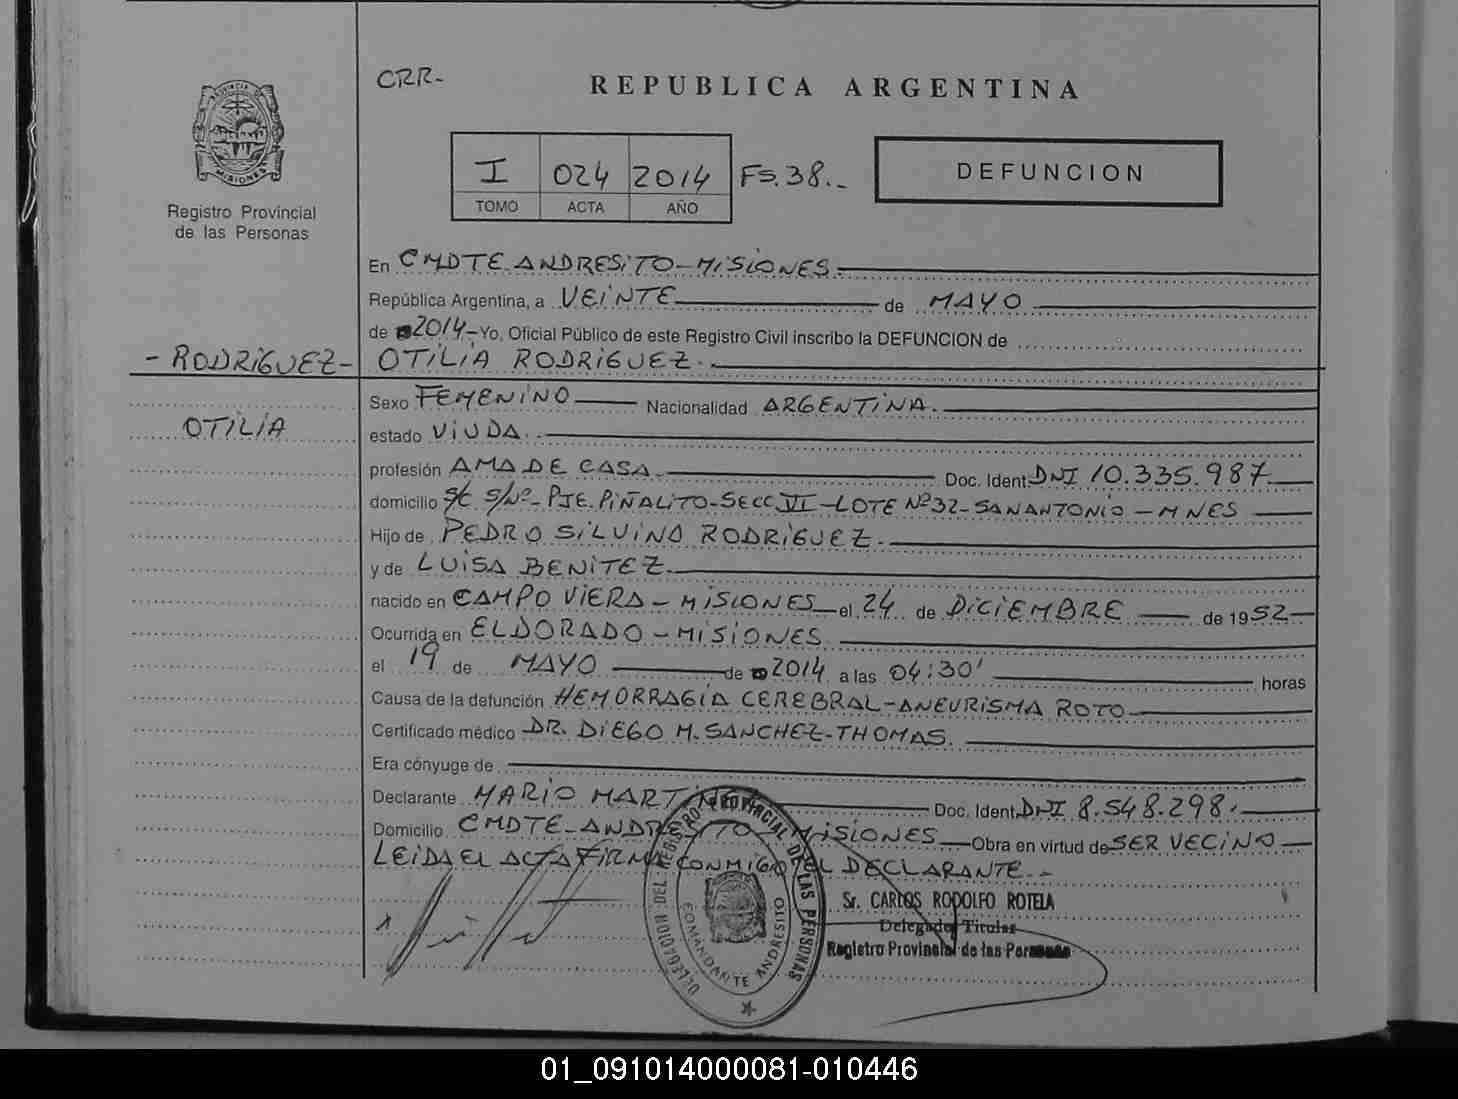 CRR-
REPUBLICA ARGENTINA
PROVINCIA DE
MISIONES
Registro Provincial
de las Personas
I 024 2014 Fs.38.-
TOMO ACTA AÑO
DEFUNCION
En CMDTE ANDRESiTO-MiSiONES.
República Argentina, a VEiNTE de MAYO
de 2014-Yo, Oficial Público de este Registro Civil inscribo la DEFUNCION de
-RODRiGUEZ- OTiLiA RODRiGUEZ.
OTiLiA
Sexo FEMENiNO Nacionalidad ARGENTiNA.
estado ViUDA.
profesión AMA DE CASA. Doc. Ident. DNI 10.335.987
domicilio S/C S/Nº-PJE.PiÑALiTO-SECC VI-LOTE Nº32-SAN ANTONiO-MNES
Hijo de PEDRO SiLViNO RODRiGUEZ.
y de LUiSA BENiTEZ.
nacido en CAMPO ViERA-MiSiONES el 24 de DiCiEMBRE de 1952
Ocurrida en ELDORADO-MiSiONES
el 19 de MAYO de 2014 a las 04:30' horas
Causa de la defunción HEMORRAGiA CEREBRAL-ANEURiSMA ROTO
Certificado médico DR. DiEGO M. SANCHEZ-THOMAS.
Era cónyuge de
Declarante MARiO MARTiNEZ Doc. Ident. DNI 8.548.298.
Domicilio CMDTE-ANDRESiTO-MiSiONES Obra en virtud de SER VECiNO
LEiDA EL ACTA FiRMA CONMiGO EL DECLARANTE.-
DELEGACION DEL REGISTRO PROVINCIAL DE LAS PERSONAS
COMANDANTE ANDRESITO
Sr. CARLOS RODOLFO ROTELA
Delegado Titular
Registro Provincial de las Personas
01_091014000081-010446